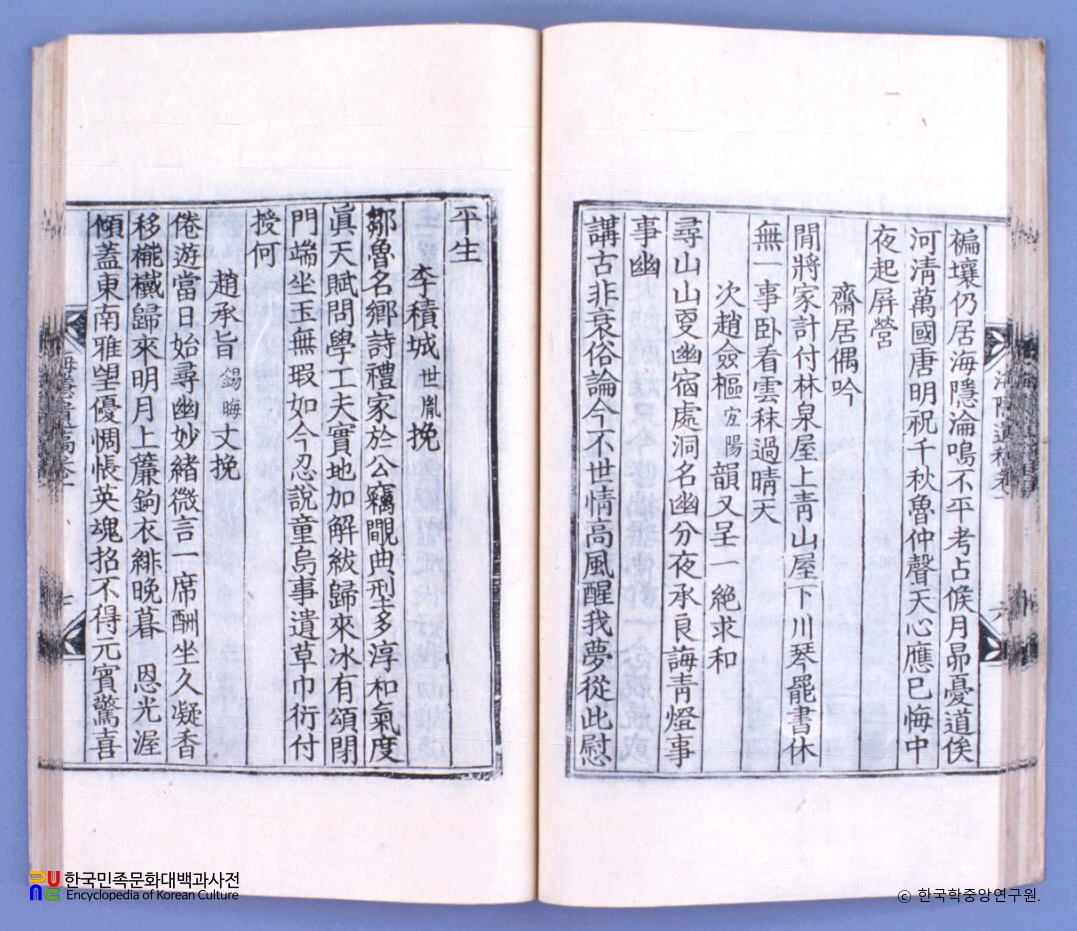 褊壤仍居海隱淪鳴不平考占候月昴憂道俟
河淸萬國唐明祝千秋魯仲聲天心應巳悔中
夜起屛營
齋居偶吟
閒將家計付林泉屋上靑山屋下川琴罷書休
無一事卧看雲秝過晴天
次趙僉樞宜陽韻又呈一絶求和
尋山山叓幽宿處洞名幽分夜承良誨靑燈事
事幽
講古非衰俗論今不世情高風醒我夢從此慰
平生
李積城世胤挽
鄒魯名鄕詩禮家於公竊覸典型多淳和氣度
眞天賦問學工夫實地加解紱歸來冰有頌閉
門端坐玉無瑕如今忍說童烏事遺草巾衍付
授何
趙承旨錫晦丈挽
倦遊當日始尋幽妙緖微言一席酬坐久凝香
移櫳檻歸來明月上簾鉤衣緋晚暮 恩光渥
傾蓋東南雅望優惆悵英魂招不得元賓驚喜
海隱遺稿卷一
한국민족문화대백과사전
Encyclopedia of Korean Culture
© 한국학중앙연구원.